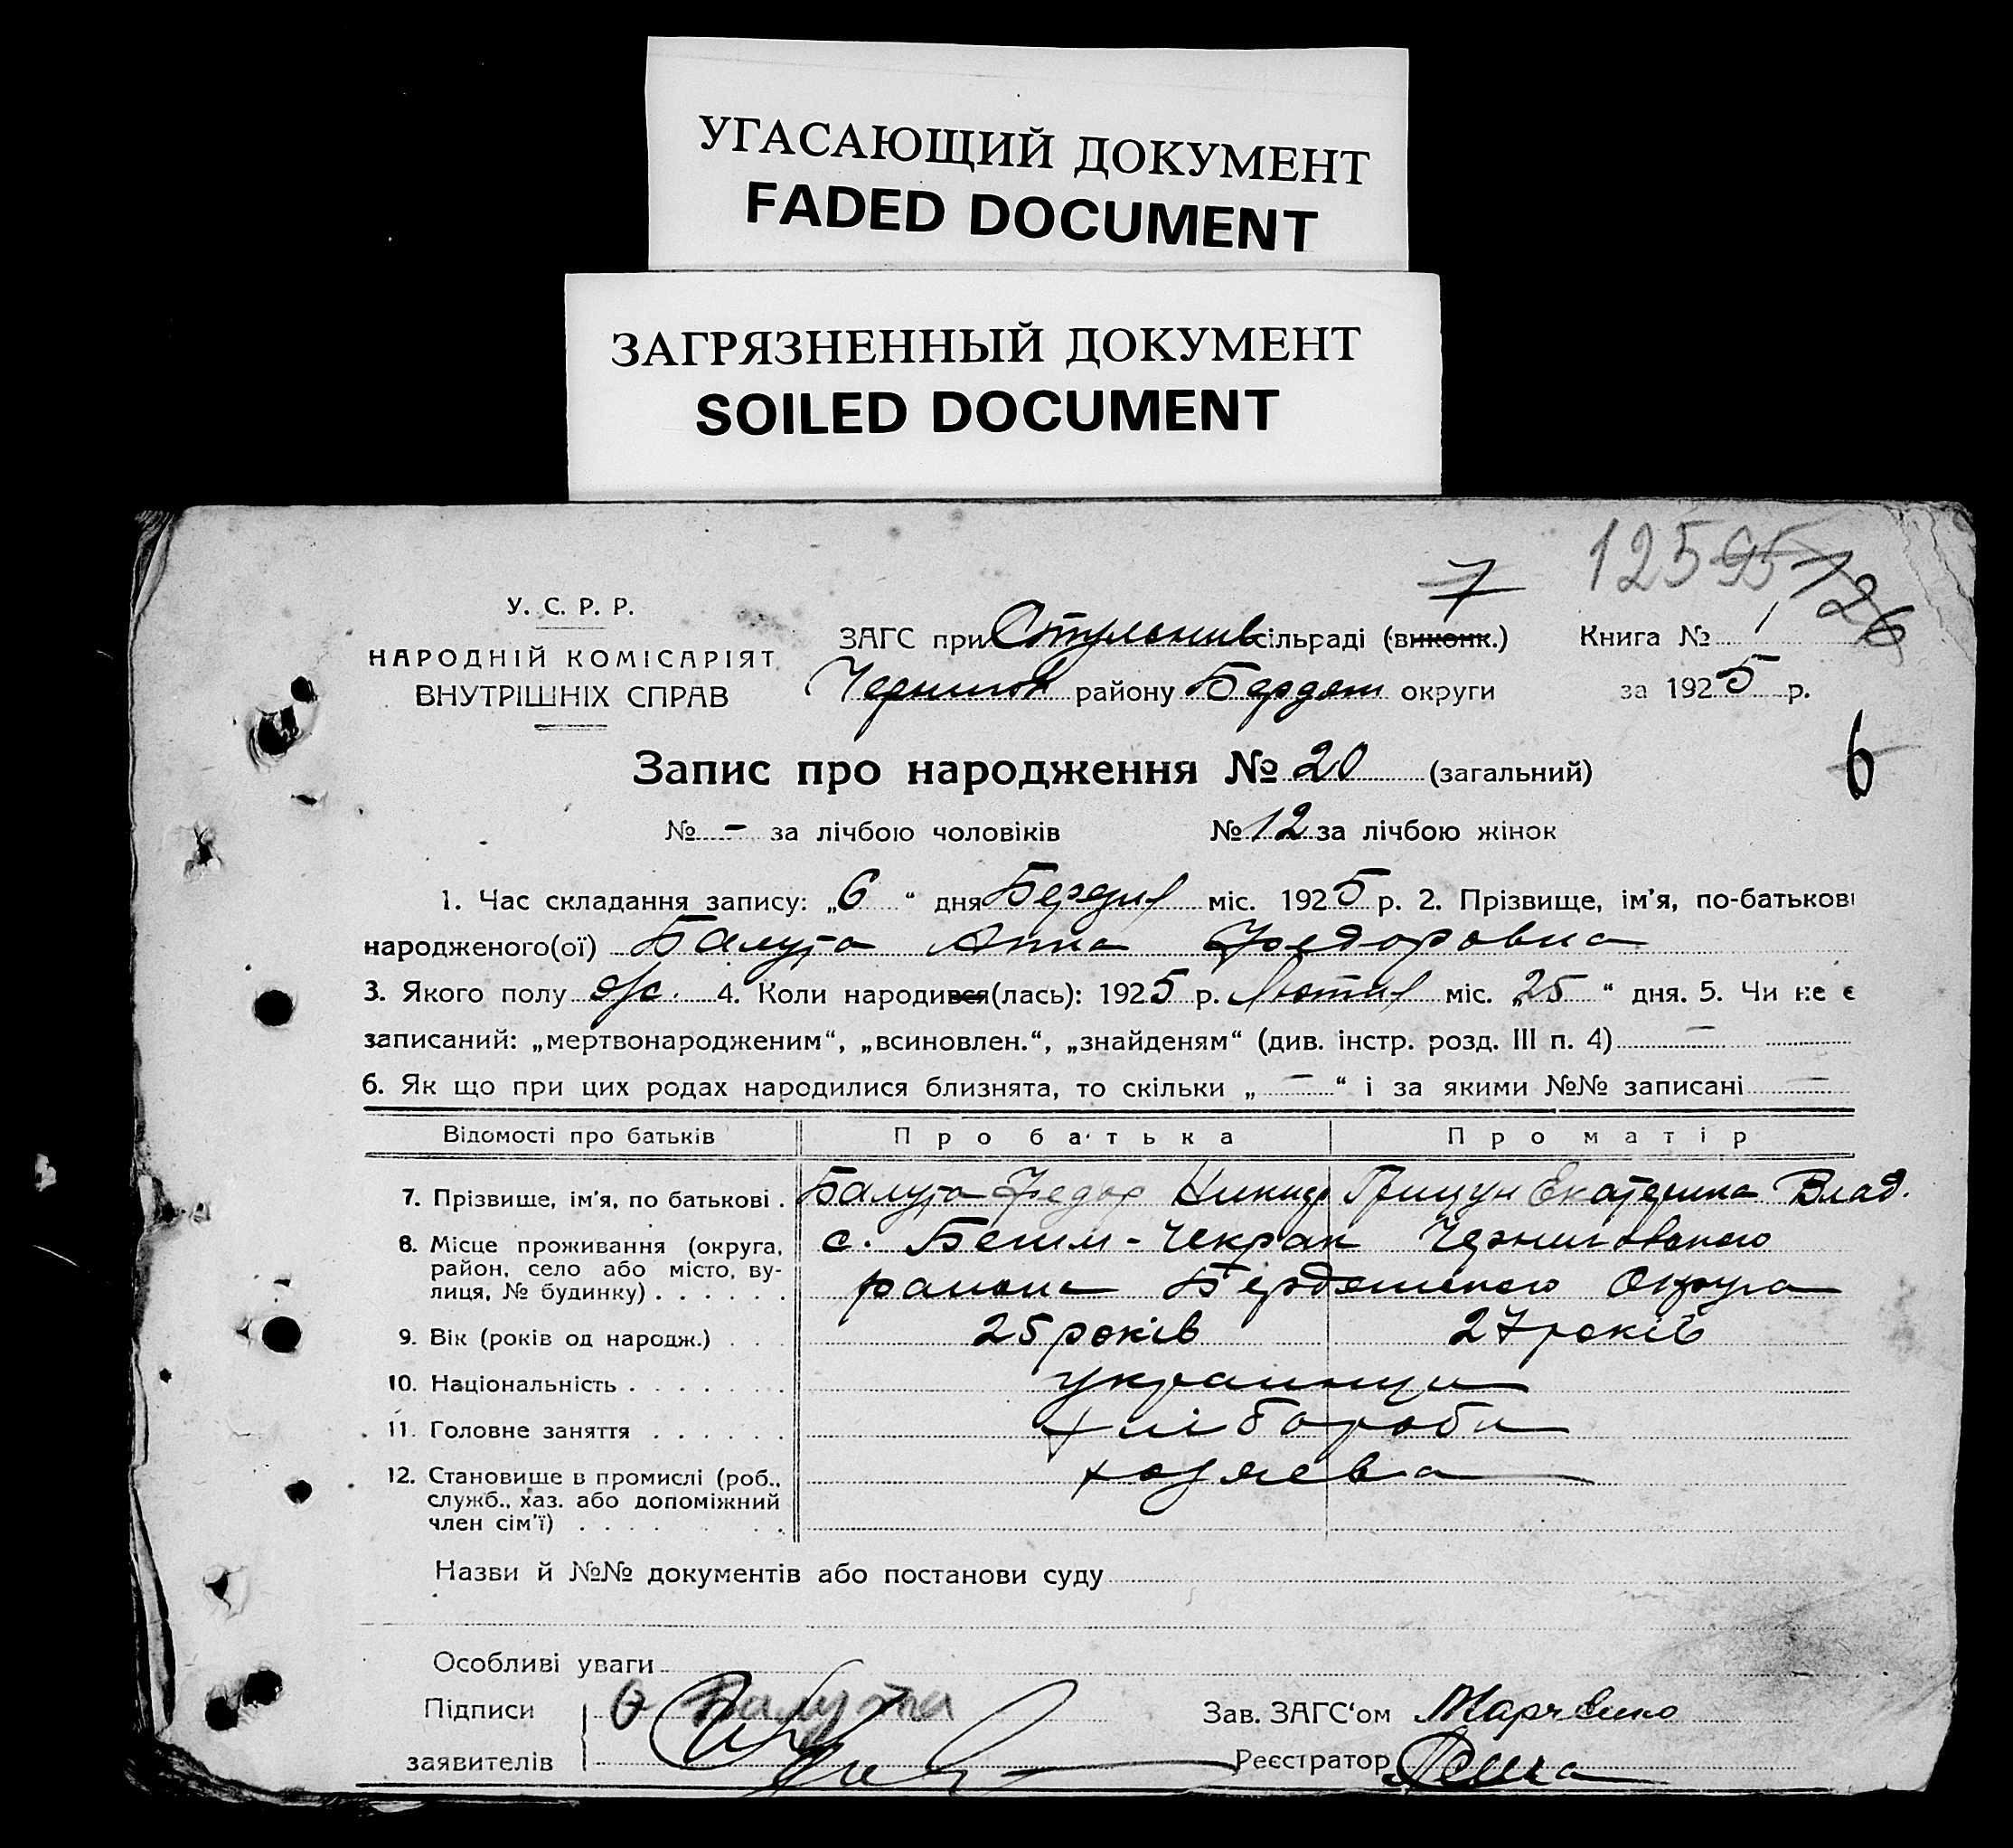 УГАСАЮЩИЙ ДОКУМЕНТ
FADED DOCUMENT
ЗАГРЯЗНЕННЫЙ ДОКУМЕНТ
SOILED DOCUMENT
12595 126
7
У. С. Р. Р.
НАРОДНІЙ КОМІСАРІЯТ
ВНУТРІШНІХ СПРАВ
ЗАГС при Стульнив сільраді (виконк.) Книга № 1
Чернигов району Бердян округи за 1925 р.
6
Запис про народження № 20 (загальний)
№ - за лічбою чоловіків № 12 за лічбою жінок
1. Час складання запису: „6“ дня міс. 1925 р. 2. Прізвище, ім'я, по-батькові
народженого(ої) Балута Анна Федоровна
3. Якого полу ж. 4. Коли народився(лась): 1925 р. міс. „25“ дня. 5. Чи не є
записаний: „мертвонародженим“, „всиновлен.“, „знайденям“ (див. інстр. розд. III п. 4) —
6. Як що при цих родах народилися близнята, то скільки „ — “ і за якими №№ записані —
Відомості про батьків Про батька Про матір
7. Прізвище, ім'я, по батькові . Балута Федор Никид Грицун Екатерина Влад.
8. Місце проживання (округа, район, село або місто, вулиця, № будинку) . . . . . . с. Бегим-Чекрак Черниговского
района Бердянского Округа
9. Вік (років од народж.) . . . 25 років 27 років
10. Національність . . . . . . . украинци
11. Головне заняття . . . . . . хлібороби
12. Становище в промислі (роб., служб., хаз. або допоміжний член сім'ї) . . . . . . хозяева
Назви й №№ документів або постанови суду
Особливі уваги
Підписи Балута Зав. ЗАГС'ом
заявителів Реєстратор